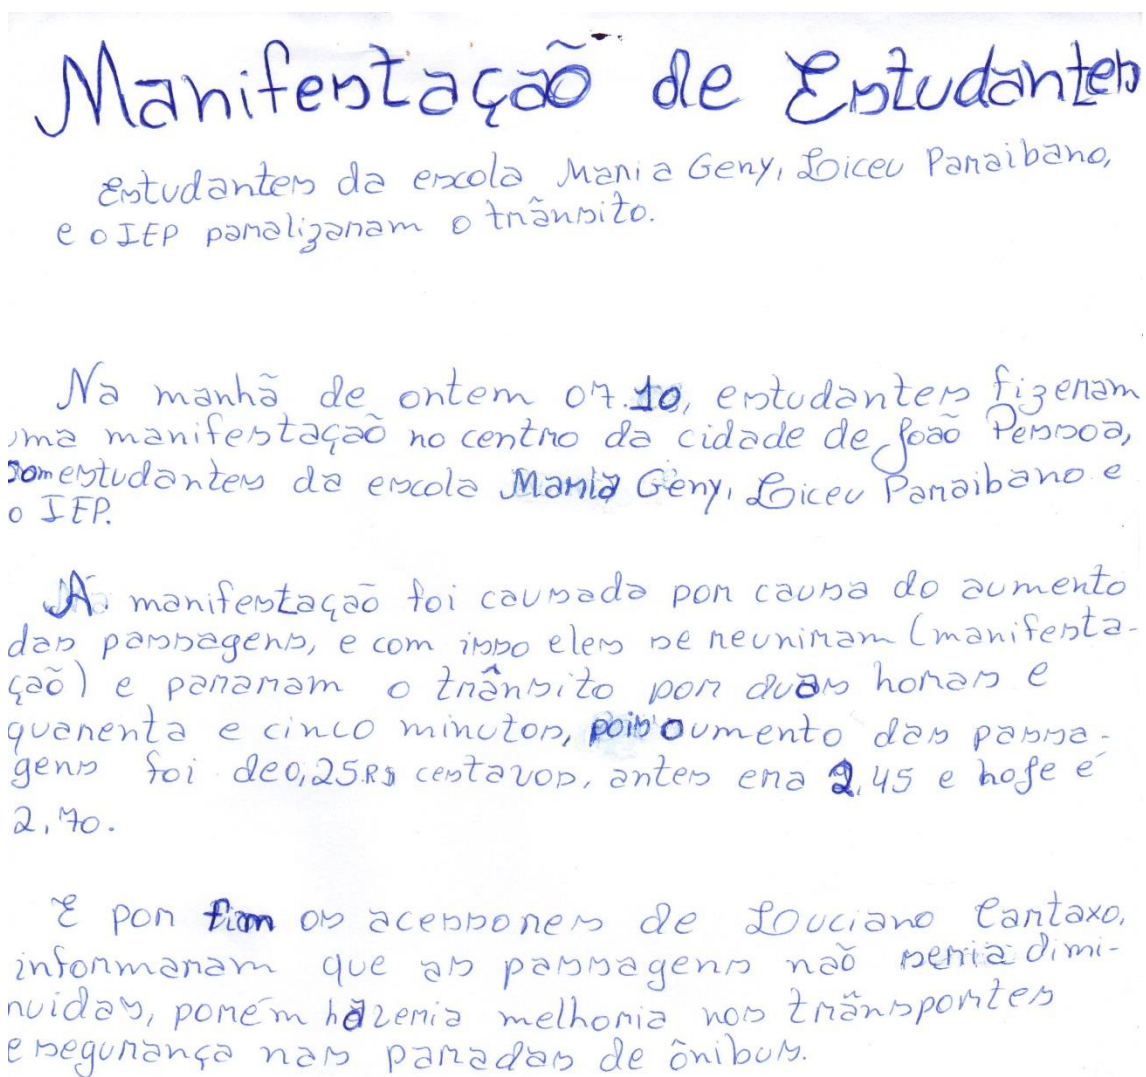 Manifestação de Estudantes
Estudantes da escola Maria Geny, Liceu Paraibano,
e o IEP paralizaram o trânsito.
Na manhã de ontem 07.10, estudantes fizeram
uma manifestação no centro da cidade de João Pessoa,
com estudantes da escola Maria Geny, Liceu Paraibano e
o IEP.
A manifestação foi causada por causa do aumento
das passagens, e com isso eles se reuniram (manifesta-
ção) e pararam o trânsito por duas horas e
quarenta e cinco minutos, pois o umento das passa-
gens foi de 0,25 R$ centavos, antes era 2,45 e hoje é
2,70.
E por fim os acessores de Louciano Cartaxo,
informaram que as passagens não seria dimi-
nuidas, porém hazeria melhoria nos trânsportes
e segurança nas paradas de ônibus.